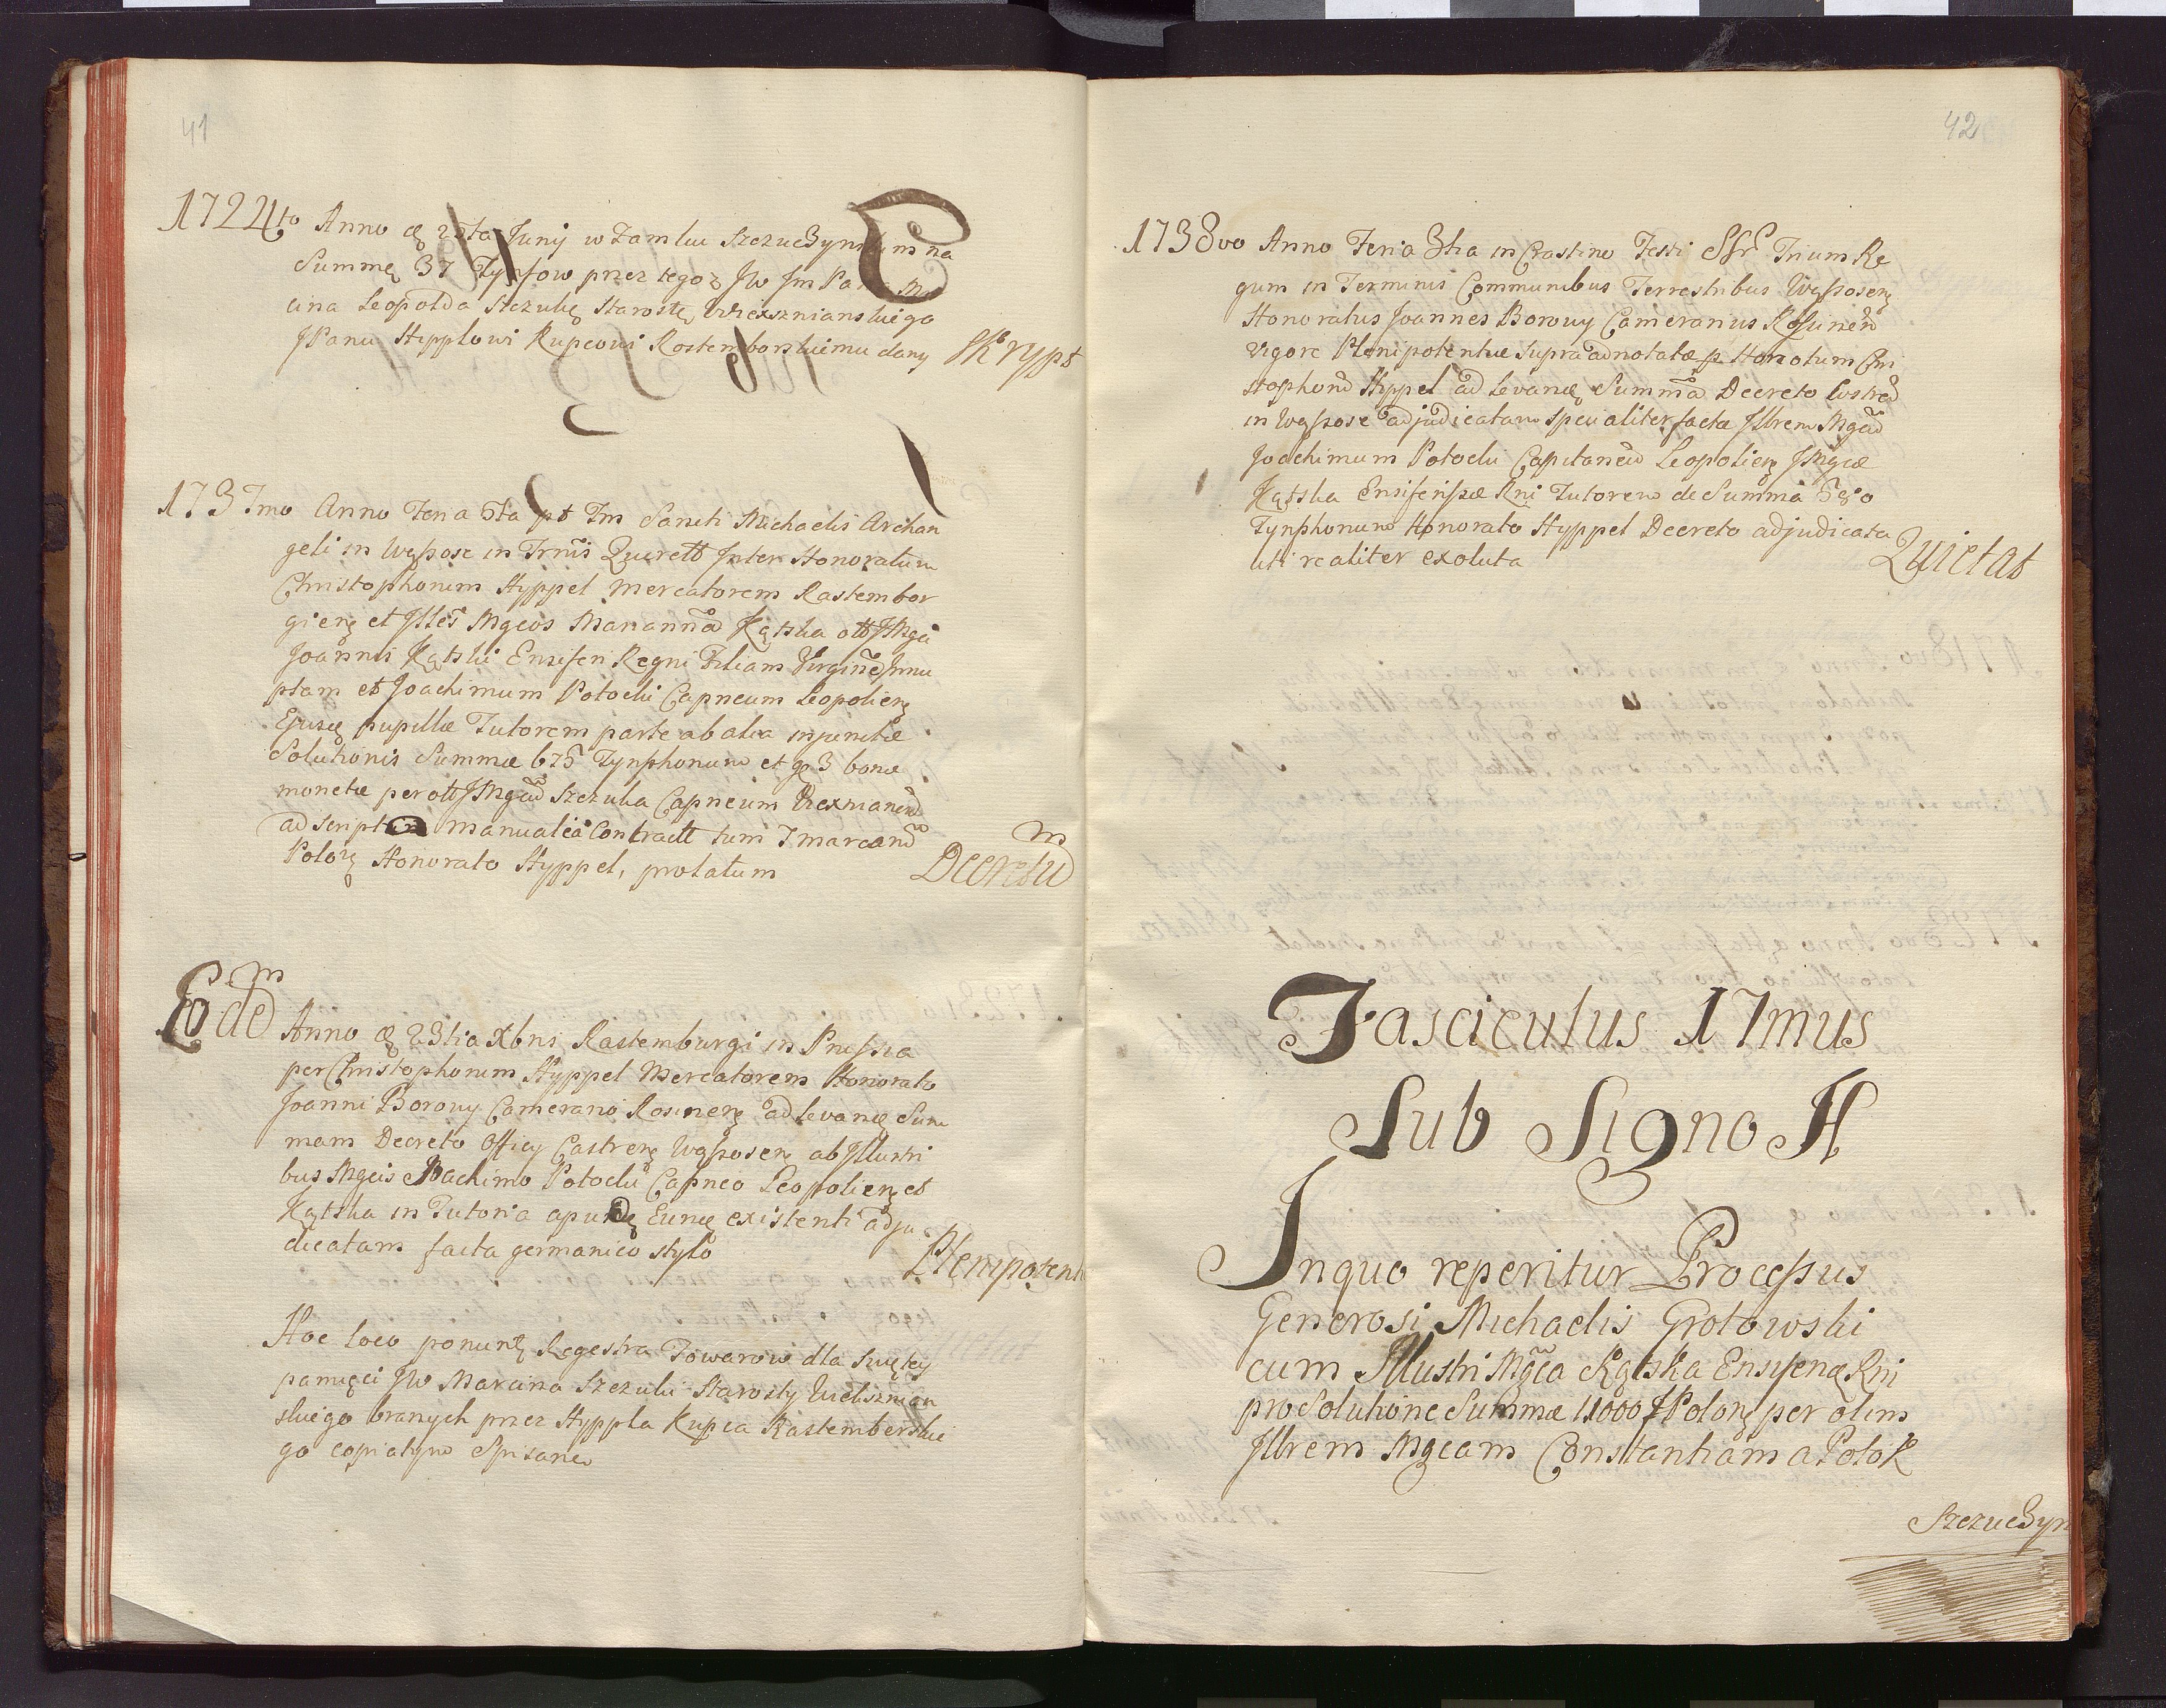 41
1724to Anno d 25ta Junij w Zamku Szczuczynskim na
Summę 37 Tynfow przez tegoz JW Jm Pana Mar
cina Leopolda Szczukę Starostę Wiexsznianskiego
JPanu Hypplowi Kupcowi Rostemborskiemu dany Skrypt
1737mo Anno Feria 5ta pt Fm Sancti Michaelis Archan
geli in Wąssosz in Trmis Querett Inter Honoratum
Christophorum Hyppel Mercatorem Rastembor
gien et Illes Mgcos Mariannā Kątska ott JMgci
Joannis Kątski Ensiferi Regni Filiam Virginē Innu
ptam et Joachimum Potocki Capneum Leopolien
Ejusq pupillæ Tutorem parte ab alia injunctæ
Solutionis Summæ 675 Tynphonum et g 3 bonæ
monetæ per ott JMgcū Szczuka Capneum Wiexnanem
ad script manualea Contractt tum 7 marcarū
Polon Honorato Hyppel, prolatum Decretum
Eodem Anno d 23tia Xbris Rastemburgi in Prussia
per Christophorum Hyppel Mercatorem Honorato
Joanni Borowy Camerario Rosinen ad levand Sum
mam Decreto Officij Castren Wąssosen ab Illustri
bus Mgcis Joachimo Potocki Capneo Leopolien et
Kątska in Tutoria apud Eund existenti adju
dicatam facta germanico stylo Plenipotent
Hoc loco ponunt Regestra Towarow dla swiętey
pamięci JW Marcina Szczuki Starosty Wielisznian
skiego branych przez Hyppla Kupca Rastemberskie
go copiatym Spisane
42
1738vo Anno Feria 3tia in Crastino Festi SSr Trium Re
gum in Terminis Communibus Terrestribus Wąssosen
Honoratus Joannes Borowy Camerarius Rosinen
vigore Plenipotentiæ supra adnotatæ p Honotum Chri
stophorū Hyppel ad levand Summā Decreto Castren
in Wąssosz adjudicatam specialiter factæ Illrem Mgcū
Joachimum Potocki Capitaneū Leopolien JMgcæ
Kątska Ensiferissæ Rni Tutorem de Summa
Tynphonum Honorato Hyppel Decreto adjudicata
uti realiter exoluta Quietat
Fasciculus 17mus
Sub Signo H
In quo reperitur Processus
Generosi Michaelis Grotowski
cum Illustri Mgca Kątska Ensifera Rni
pro Solutione Summæ 11000 f Polon per olim
Illrem Mgcam Constantiam a Potok
Szczuczyn